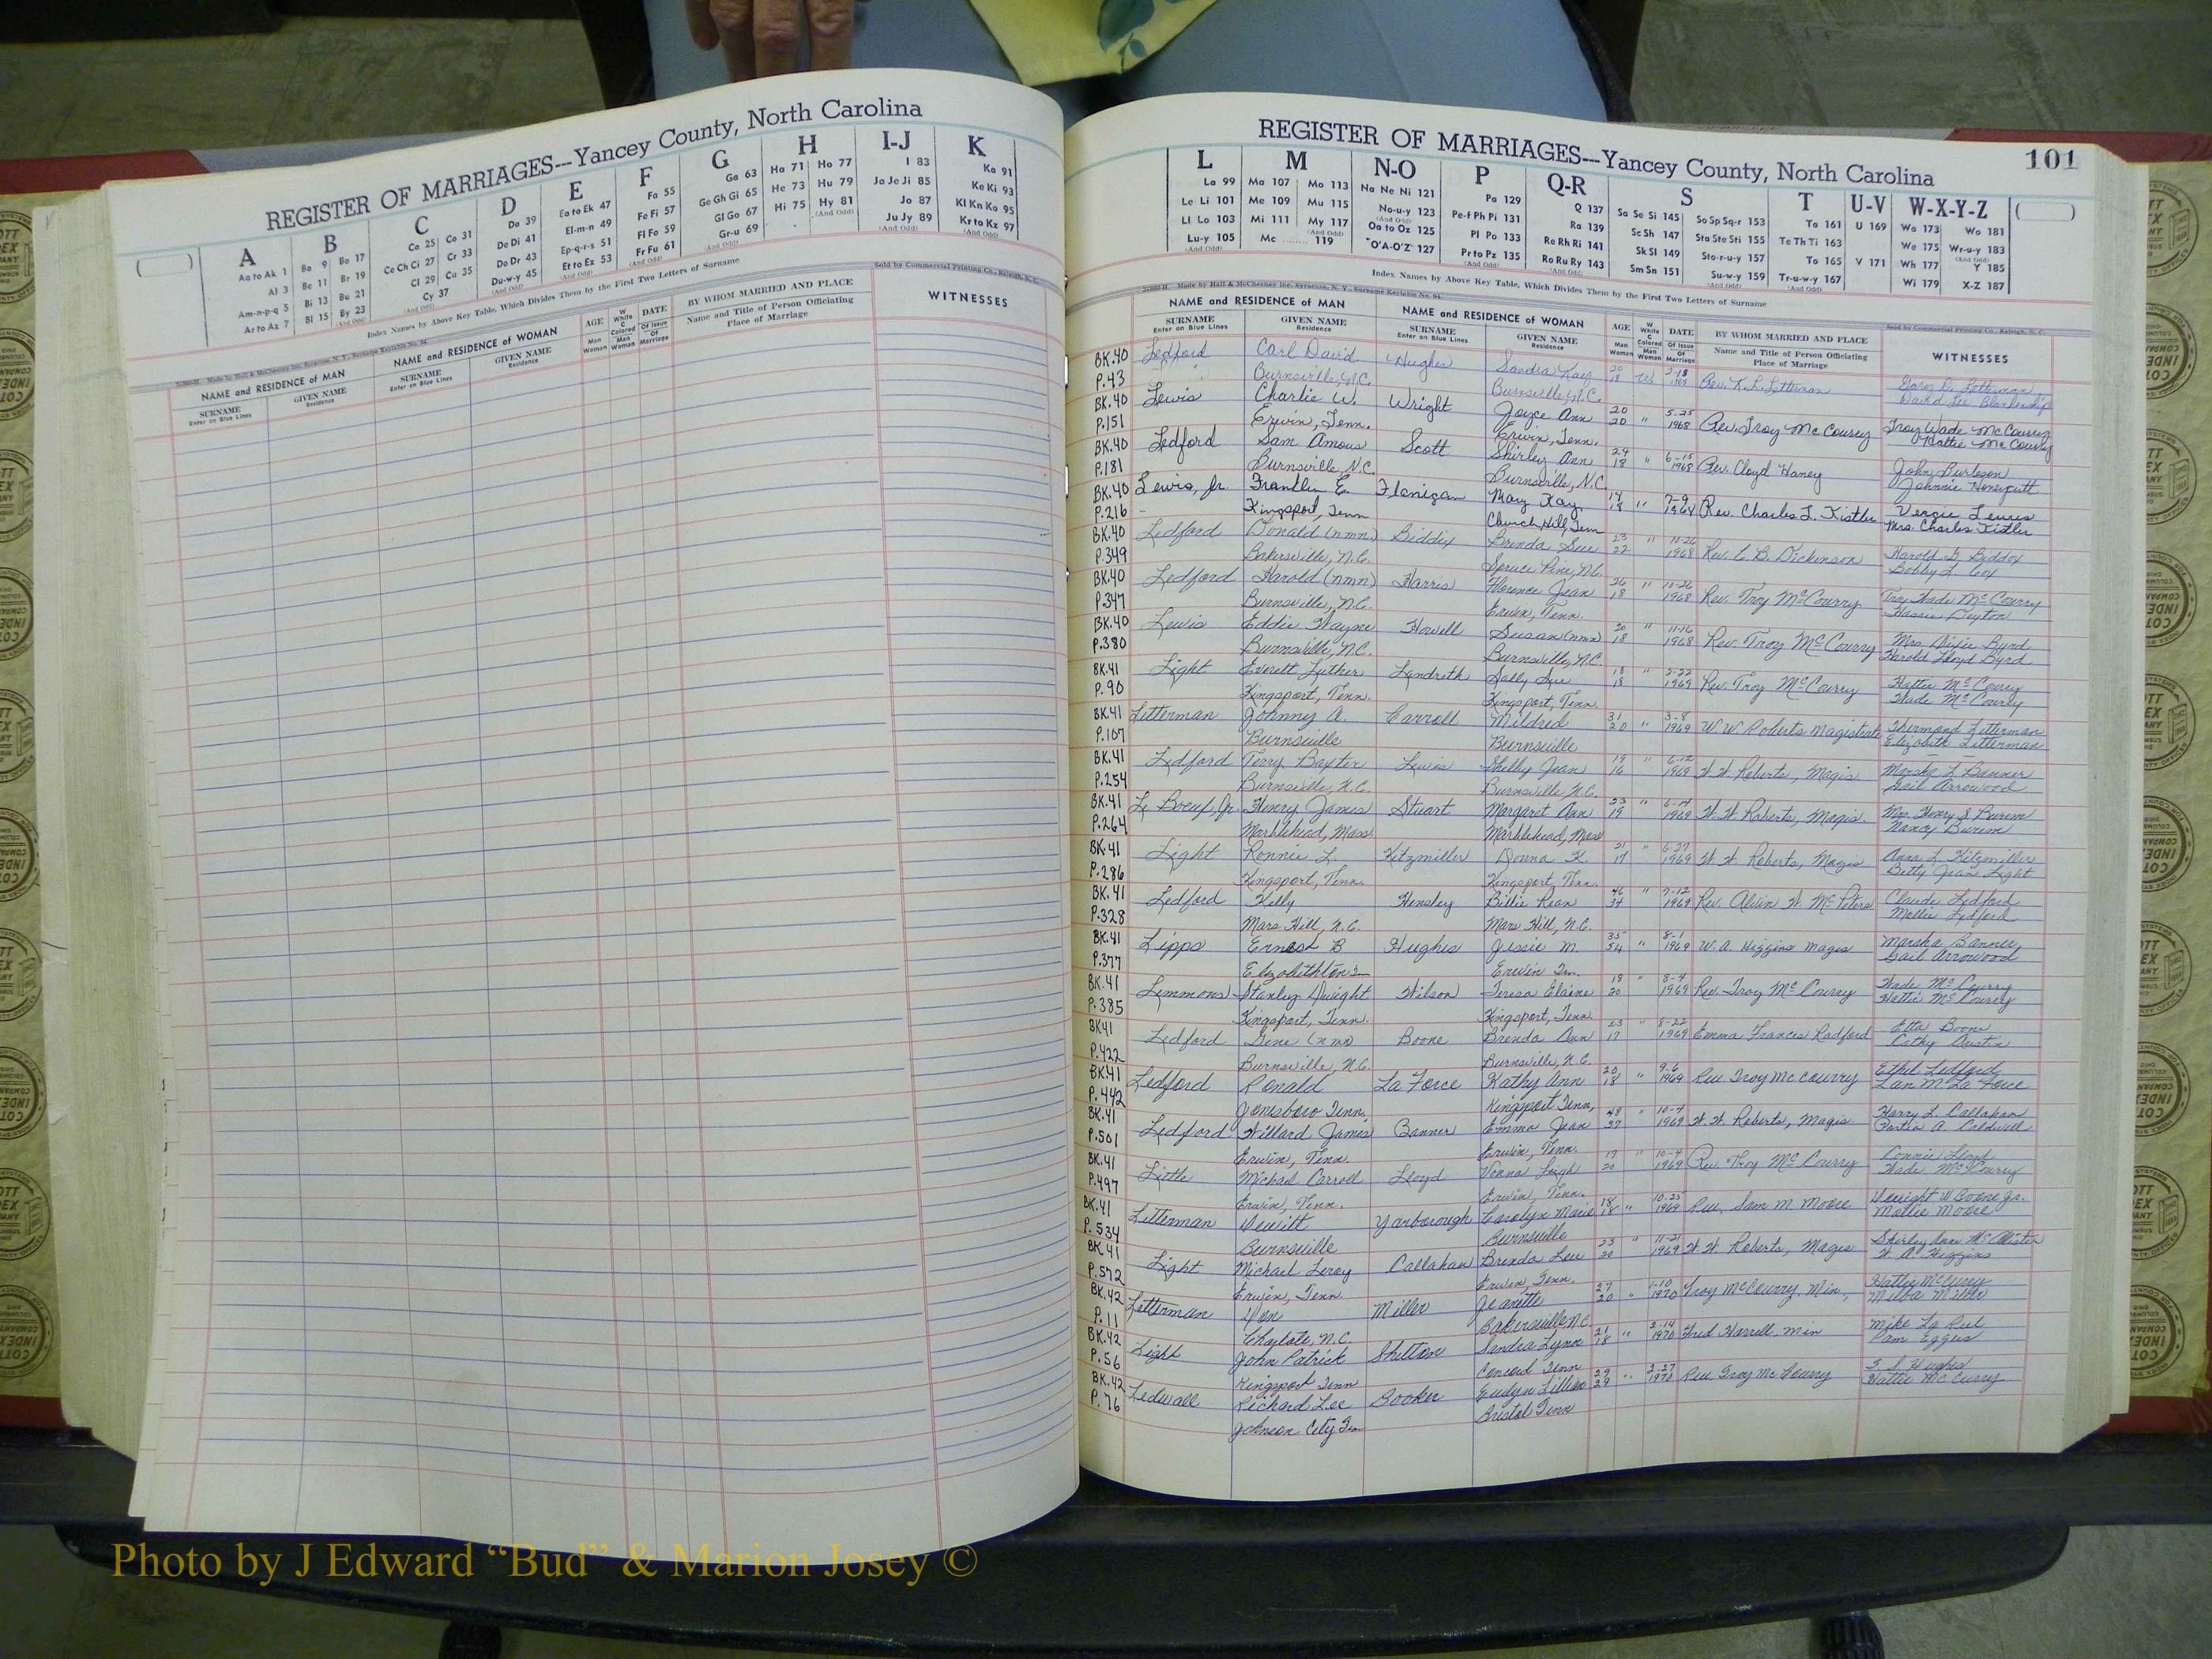 REGISTER OF MARRIAGES---Yancey County, North Carolina
A B C D E F G H I-J K
Aa to Ak 1 Ba 9 Bo 17 Ca 25 Co 31 Da 39 Ea to Ek 47 Fa 55 Ga 63 Ha 71 Ho 77 I 83 Ka 91
Al 3 Be 11 Br 19 Ce Ch Ci 27 Cr 33 De Di 41 El-m-n 49 Fe Fi 57 Ge Gh Gi 65 He 73 Hu 79 Ja Je Ji 85 Ke Ki 93
Am-n-p-q 5 Bi 13 Bu 21 Cl 29 Cu 35 Do Dr 43 Ep-q-r-s 51 Fl Fo 59 Gl Go 67 Hi 75 Hy 81 Jo 87 Kl Kn Ko 95
Ar to Az 7 Bl 15 By 23 Cy 37 Du-w-y 45 Et to Ez 53 Fr Fu 61 Gr-u 69 Ju Jy 89 Kr to Kz 97
Index Names by Above Key Table, Which Divides Them by the First Two Letters of Surname
Sold by Commercial Printing Co., Raleigh, N. C.
NAME and RESIDENCE of MAN NAME and RESIDENCE of WOMAN AGE DATE BY WHOM MARRIED AND PLACE WITNESSES
SURNAME GIVEN NAME SURNAME GIVEN NAME Name and Title of Person Officiating
Enter on Blue Lines Residence Enter on Blue Lines Residence Place of Marriage
REGISTER OF MARRIAGES---Yancey County, North Carolina 101
L M N-O P Q-R S T U-V W-X-Y-Z
La 99 Ma 107 Mo 113 Na Ne Ni 121 Pa 129 Q 137 Sa Se Si 145 So Sp Sq-r 153 Ta 161 U 169 Wa 173 Wo 181
Le Li 101 Me 109 Mu 115 No-u-y 123 Pe-f Ph Pi 131 Ra 139 Sc Sh 147 Sta Ste Sti 155 Te Th Ti 163 We 175 Wr-u-y 183
Ll Lo 103 Mi 111 My 117 Oa to Oz 125 Pl Po 133 Re Rh Ri 141 Sk Sl 149 Sto-r-u-y 157 To 165 V 171 Wh 177 Y 185
Lu-y 105 Mc 119 "O'A-O'Z" 127 Pr to Pz 135 Ro Ru Ry 143 Sm Sn 151 Su-w-y 159 Tr-u-w-y 167 Wi 179 X-Z 187
Index Names by Above Key Table, Which Divides Them by the First Two Letters of Surname
NAME and RESIDENCE of MAN NAME and RESIDENCE of WOMAN AGE DATE BY WHOM MARRIED AND PLACE WITNESSES
SURNAME GIVEN NAME SURNAME GIVEN NAME Name and Title of Person Officiating
Enter on Blue Lines Residence Enter on Blue Lines Residence Place of Marriage
BK.40 Ledford Carl David Hughes Sandra Kay 20 W 2-18 Rev. K.L. Letterman
P.43 Burnsville, N.C. Burnsville, N.C. 18 David Lee Blankenship
BK.40 Lewis Charlie W. Wright Joyce Ann 20 " 5-25 Rev. Troy McCourry Troy Wade McCourry
P.151 Erwin, Tenn. Erwin, Tenn. 20 1968 Hattie McCourry
BK.40 Ledford Sam Amous Scott Shirley Ann 24 " 6-15 Rev. Cloyd Haney John Burleson
P.181 Burnsville, N.C. Burnsville, N.C. 18 1968 Johnnie Honeycutt
BK.40 Lewis, Jr. Franklin E. Flanigan Mary Kay " 7-9 Rev. Charles L. Kistler Vergie Lewis
P.216 Kingsport, Tenn Church Hill, Tenn 18 1968 Mrs. Charles Kistler
BK.40 Ledford Donald (nmn) Biddix Brenda Sue 23 " 10-26 Rev. C.B. Dickenson Harold G Biddix
P.349 Bakersville, N.C. Spruce Pine, N.C. 22 1968 Bobby L Cox
BK.40 Ledford Harold (nmn) Harris Florence Jean 26 " 10-26 Rev. Troy McCourry Troy Wade McCourry
P.347 Burnsville, N.C. Erwin, Tenn. 18 1968 Hassie Deyton
BK.40 Lewis Eddie Wayne Howell Susan (nmn) 20 " 11-16 Rev. Troy McCourry Mrs. Dixie Byrd
P.380 Burnsville, N.C. Burnsville, N.C. 18 1968 Harold Lloyd Byrd
BK.41 Light Everett Luther Landreth Sally Sue 18 " 2-22 Rev. Troy McCourry Hattie McCourry
P.90 Kingsport, Tenn. Kingsport, Tenn. 18 1969 Wade McCourry
BK.41 Letterman Johnny A. Carroll Mildred 31 " 3-8 W W Roberts Magistrate Thermond Letterman
P.107 Burnsville Burnsville 20 1969 Elizabeth Letterman
BK.41 Ledford Terry Baxter Lewis Shelby Jean 19 " 6-12 W.W. Roberts, Magis Marsha L Banner
P.254 Burnsville, N.C. Burnsville N.C. 16 1969 Gail Arrowood
BK.41 Le Boeuf, Jr. Henry James Stuart Margaret Ann 23 " 6-14 W.W. Roberts, Magis. Mrs. Henry S Burem
P.264 Marblehead, Mass. Marblehead, Mass 19 1969 Nancy Burem
BK.41 Light Ronnie L. Kitzmiller Donna K. 21 " 6-27 W.W. Roberts, Magis Anna L. Kitzmiller
P.286 Kingsport, Tenn. Kingsport, Tenn. 19 1969 Betty Jean Light
BK.41 Ledford Kelly Hensley Billie Rean 46 " 7-12 Rev. Alvin W. McPeters Claude Ledford
P.328 Mars Hill, N.C. Mars Hill, N.C. 34 1969 Mollie Ledford
BK.41 Lipps Ernest B Hughes Jessie M 35 " 8-1 W. A. Higgins Magis Marsha Banner
P.377 Elizabethton Erwin Tn. 34 1969 Gail Arrowood
BK.41 Lemmons Stanley Dwight Wilson Teresa Elaine 18 " 8-4 Rev. Troy McCourry Wade McCourry
P.385 Kingsport, Tenn. Kingsport, Tenn 20 1969 Hattie McCourry
BK41 Ledford Gene (nmn) Boone Brenda Ann 23 " 8-22 Emma Frances Radford Etta Boone
P.422 Burnsville, N.C. Burnsville, N.C. 17 1969 Cathy Austin
BK41 Ledford Ronald La Force Kathy Ann 20 " 9-6 Rev Troy McCourry Ethel Ledford
P.442 Jonesboro Tenn. Kingsport Tenn, 18 1969 M La Force
BK.41 Ledford Willard James Banner Emma Jean 48 " 10-4 W.W. Roberts, Magis Harry L. Callahan
P.501 Erwin, Tenn. Erwin, Tenn. 37 1969 Portia A Caldwell
BK.41 Little Michael Carroll Lloyd Leigh 19 " 10-4 Rev. Troy McCourry Connie Lloyd
P.497 Erwin, Tenn. Erwin, Tenn. 20 1969 Wade McCourry
BK.41 Letterman Dewitt Yarborough Carolyn Marie 18 " 10-25 Rev, Sam M Moore Dwight W Boone Jr.
P.534 Burnsville Burnsville 18 1969 Mattie Moore
BK.41 Light Michael Leroy Callahan Brenda Lou 23 " 11-21 W.W. Roberts, Magis Shirley Ann McAllister
P.572 Erwin, Tenn. Erwin, Tenn. 20 1969 W.A. Higgins
BK.42 Letterman Don Miller Jeanette 27 " 1-10 Troy McCourry, Min., Hattie McCurry
P.11 Charlotte, N.C. Bakersville N.C. 20 1970 Miller
BK.42 Light John Patrick Shelton Sandra Lynn 21 " 2-14 Fred Harrell min Mike
P.56 Kingsport Tenn Concord Tenn 18 1970 Pam Eggers
BK.42 Ledwall Richard Lee Booker Evelyn Lillian 29 " 2-27 Rev Troy McCourry
P.76 Johnson City Bristol Tenn 29 1970 Hattie McCurry
Photo by J Edward “Bud” & Marion Josey ©